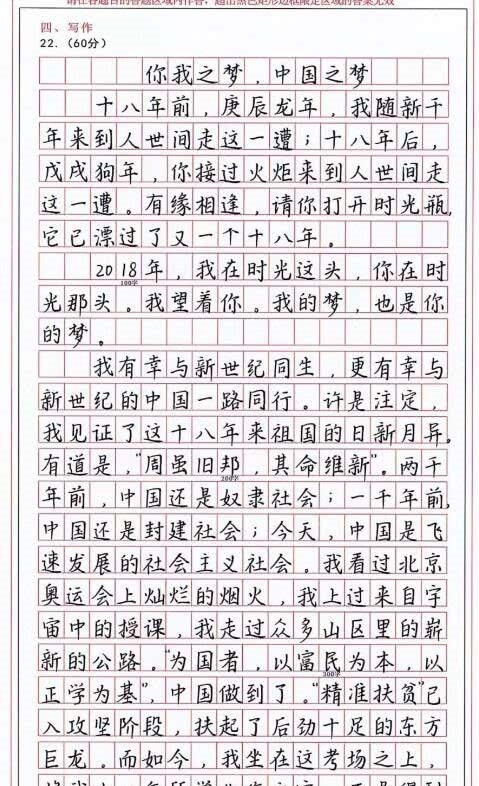 请在各题目的答题区域内作答，超出黑色矩形边框限定区域的答案无效
四、写作
22.（60分）
你我之梦，中国之梦
十八年前，庚辰龙年，我随新千
年来到人世间走这一遭；十八年后，
戊戌狗年，你接过火炬来到人世间走
这一遭。有缘相逢，请你打开时光瓶，
它已漂过了又一个十八年。
2018年，我在时光这头，你在时
100字
光那头。我望着你。我的梦，也是你
的梦。
我有幸与新世纪同生，更有幸与
新世纪的中国一路同行。许是注定，
我见证了这十八年来祖国的日新月异。
有道是，“周虽旧邦，其命维新”。两千
200字
年前，中国还是奴隶社会；一千年前，
中国还是封建社会；今天，中国是飞
速发展的社会主义社会。我看过北京
奥运会上灿烂的烟火，我上过来自宇
宙中的授课，我走过众多山区里的崭
新的公路。“为国者，以富民为本，以
300字
正学为基”，中国做到了。“精准扶贫”已
入攻坚阶段，扶起了后劲十足的东方
巨龙。而如今，我坐在这考场之上，